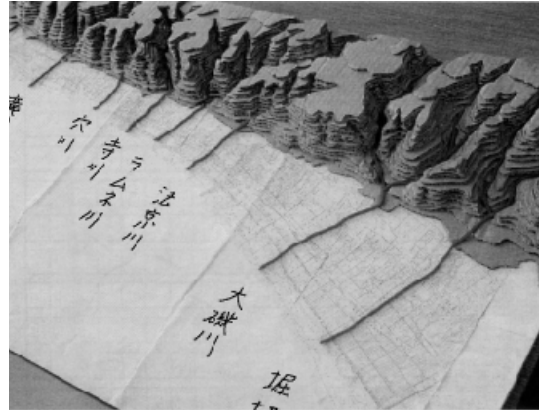 穴川
寺川
ラムネ川
法京川
大磯川
堀